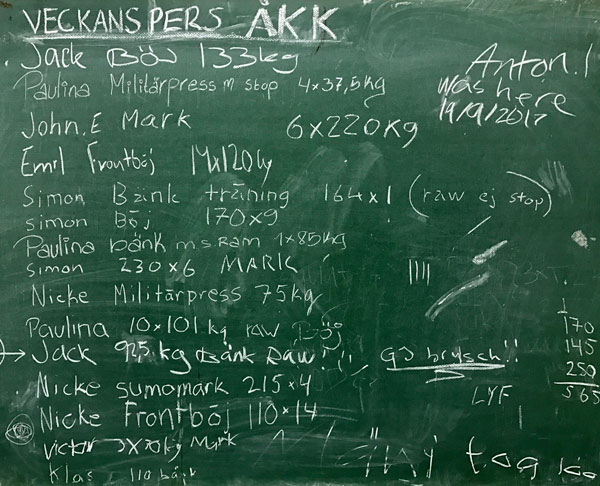 VECKANS PERS ÅKK
Jack Böj 133kg
Paulina Militärpress m stop 4x37,5kg
Anton.I
was here
19/9/2017
John.E Mark 6x220kg
Emil Frontböj 14x120kg
Simon Bänk träning 164x1 (raw ej stop)
simon Böj 170x9
Paulina bänk m.s RAM 1x85kg
simon 230x6 MARK
Nicke Militärpress 75kg
Paulina 10x101 kg raw Böj
→ Jack 92,5 kg Bänk Raw!!!
Gö brysch!!
1
170
145
250
565
Nicke sumomark 215x4
LYF
Nicke Frontböj 110x14
victor 3x70kg Mark
Klas 110 bänk
tag